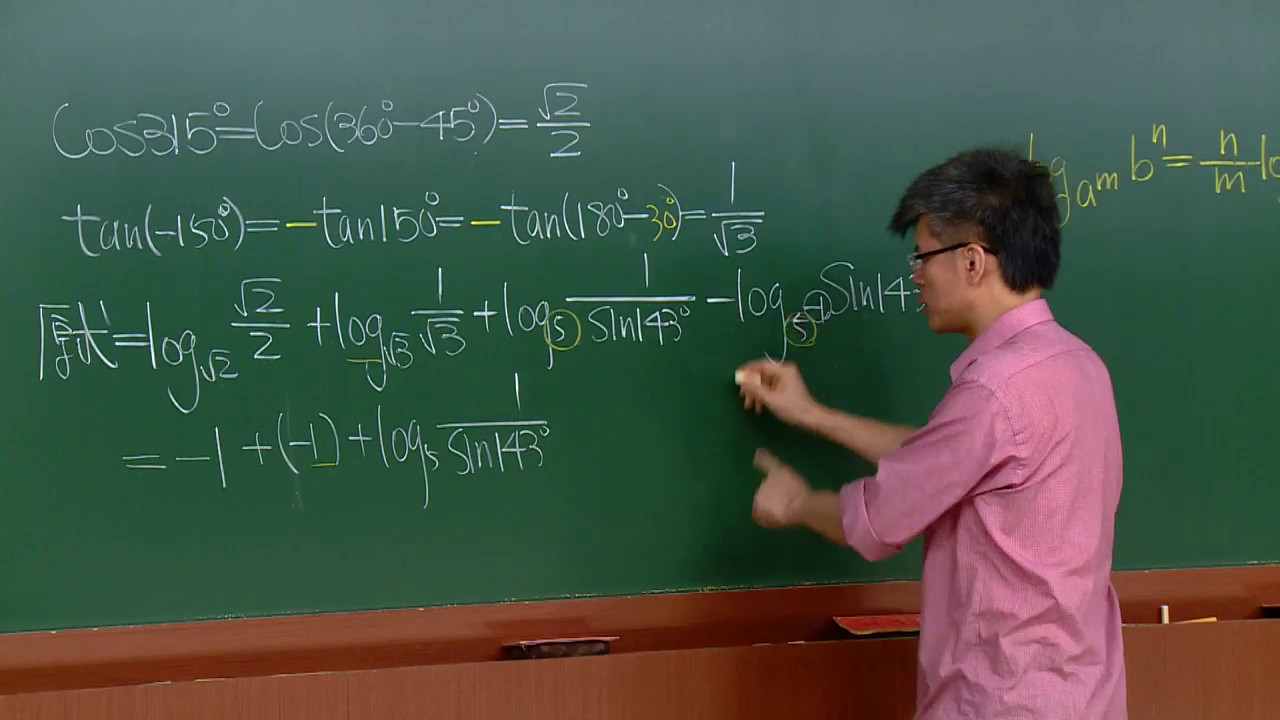 cos315°=cos(360°-45°)=√2/2
tan(-150°)=-tan150°=-tan(180°-30°)=1/√3
原式=log_√2 √2/2+log_√3 1/√3+log_5 1/sin143°-log_5^-1 sin143
=-1+(-1)+log_5 1/sin143°
log_a^m b^n=n/m